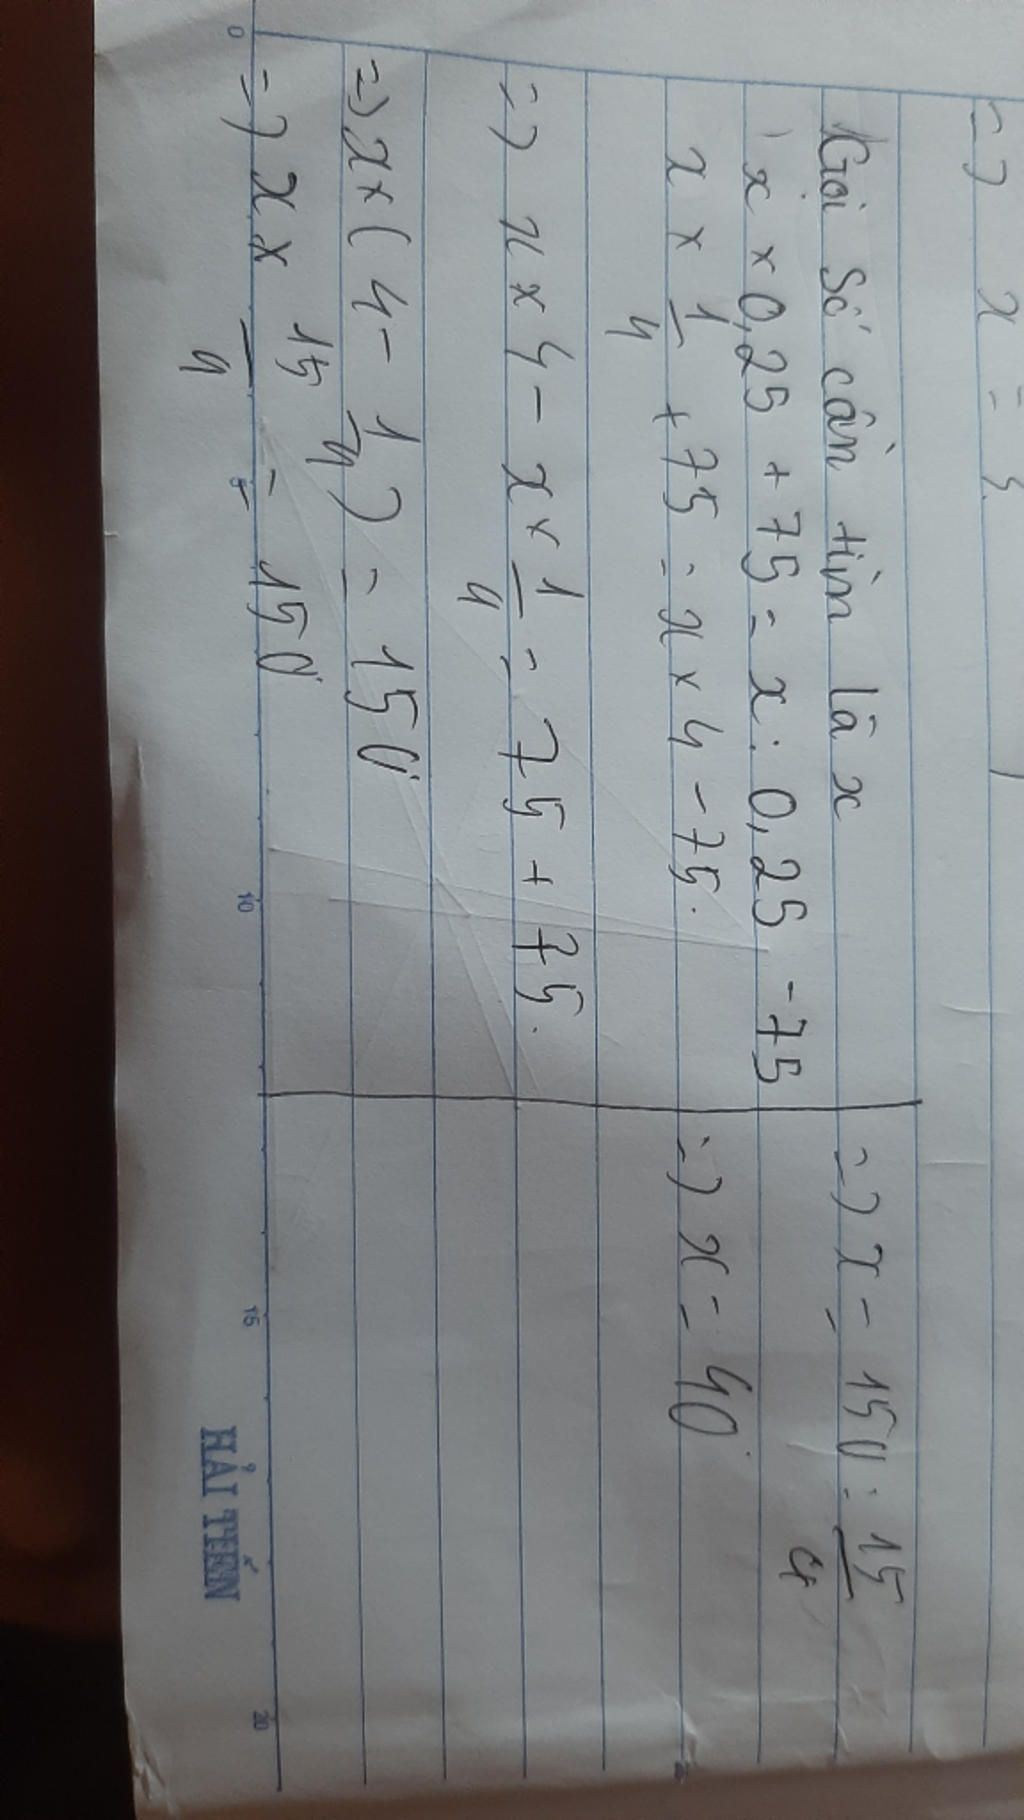 => x = 3
Gọi số cần tìm là x
x × 0,25 + 75 = x : 0,25 - 75
x × 1/4 + 75 = x × 4 - 75.
=> x × 4 - x × 1/4 = 75 + 75.
=> x × ( 4 - 1/4 ) = 150
=> x × 15/4 = 150
=> x = 150 : 15/4
=> x = 40
0 5 10 15 20
HẢI TIẾN